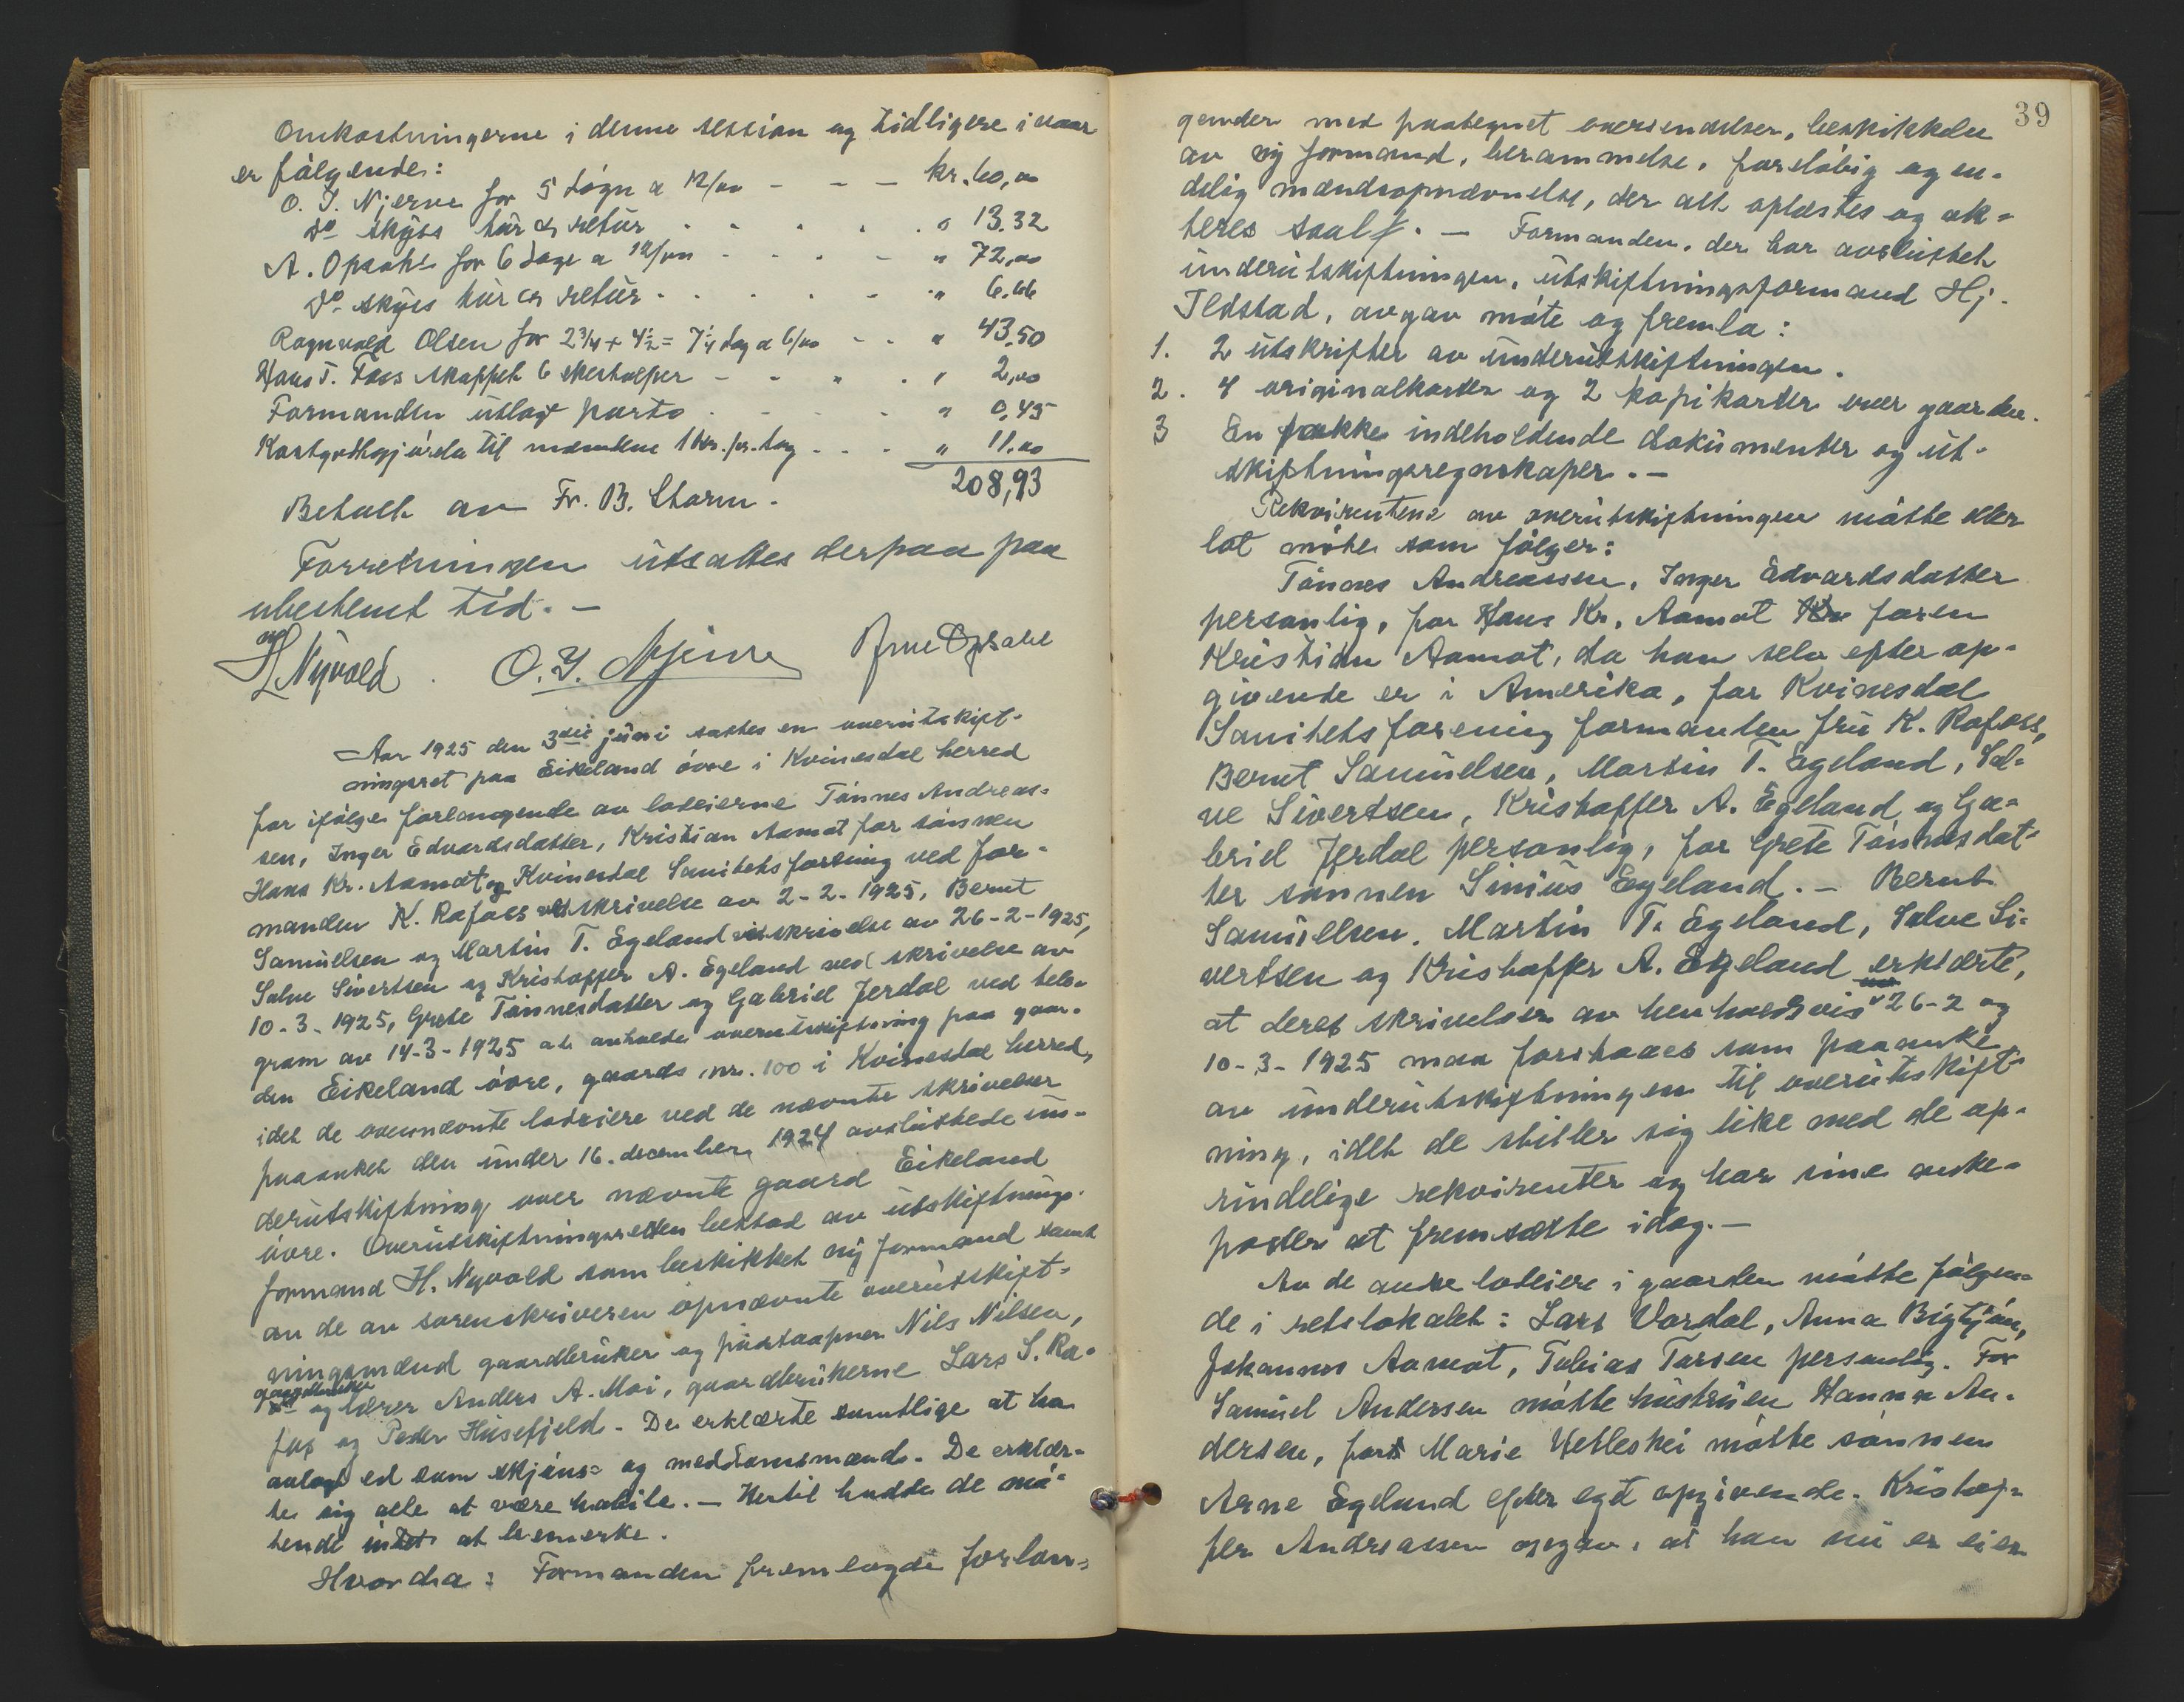 Omkostningerne i denne session og tidligere i vaar
er følgende:
O. J. Njerve for 5 døgn a 12/00 - - - kr. 60,00
do skyss tur & retur . . . . . " 13.32
A. Opsahl for 6 dage a 12/00 - . . - " 72,00
do skyss tur & retur . . . . - " 6.66
Ragnvald Olsen for 2 3/4 + 4 1/2 = 7 1/4 dag a 6/00 - . " 43,50
Hans T. Foss skaffet 6 ekestolper - - . . " 2,00
Formanden utlagt porto . . . . " 0,45
Kostgodtgjørelse til mændene 1 kr. pr. dag . . . " 11.00
208,93
Betalt av Fr. B. Storm.
Forretningen utsattes derpaa paa
ubestemt tid. -
H Nyvold. O. J. Njerve Arne Opsahl
Aar 1925 den 3die juni sattes en overutskift-
ningsret paa Eikeland øvre i Kvinesdal herred
for ifølge forlangende av lodeierne Tønnes Andreas-
sen, Inger Edvardsdatter, Kristian Aamot for sønnen
Hans Kr. Aamot og Kvinesdal Sanitetsforening ved for-
manden K. Rafoss ved skrivelse av 2-2-1925, Bernt
Samuelsen og Martin T. Egeland ved skrivelse av 26-2-1925,
Salve Sivertsen og Kristoffer A. Egeland ved skrivelse av
10-3-1925, Grete Tønnesdatter og Gabriel Jerdal ved tele-
gram av 14-3-1925 at avholde overutskiftning paa gaar-
den Eikeland øvre, gaards nr. 100 i Kvinesdal herred,
idet de ovennævnte lodeiere ved de nævnte skrivelser
paaanket den under 16. december 1924 avsluttede un-
derutskiftning over nævnte gaard Eikeland
øvre. Overutskiftningsretten bestod av utskiftnings-
formand H. Nyvold som beskikket ny formand samt
av de av sorenskriveren opnævnte overutskift-
ningsmænd gaardbruker og postaapner Nils Nilsen,
gaardbruker
do og lærer Anders A. Moi, gaardbrukerne Lars S. Ra-
foss og Peder Husefjeld. - De erklærte samtlige at ha
avlagt ed som skjøns- og meddomsmænd. De erklær-
te sig alle at være habile. - Hertil hadde de mø-
tende intet at bemerke.
Hvorda: Formanden fremlagde forlan-
39
gender med paategnet oversendelser, beskikkelse
av ny formand, berammelse, foreløbig og en-
delig mændsopnævnelse, der alt oplæstes og ak-
teres saal. . - Formanden, der har avsluttet
underutskiftningen, utskiftningsformand Hj.
Ildstad, avgav møte og fremla:
1. 2 utskrifter av underutskiftningen.
2. 4 originalkarter og 2 kopikarter over gaarden.
3 En pakke indeholdende dokumenter og ut-
skiftningsregnskaper. -
Rekvirentene av overutskiftningen møtte eller
lot møte som følger:
Tønnes Andreassen, Inger Edvardsdatter
personlig, for Hans Kr. Aamot faren
Kristian Aamot, da han selv efter op-
givende er i Amerika, for Kvinesdal
Sanitetsforening formanden fru K. Rafoss,
Bernt Samuelsen, Martin T. Egeland, Sal-
ve Sivertsen, Kristoffer A. Egeland og Ga-
briel Jerdal personlig, for Grete Tønnesdat-
ter sønnen Sinius Egeland. - Bernt
Samuelsen, Martin T. Egeland, Salve Si-
vertsen og Kristoffer A. Egeland erklærte,
at deres skrivelser av henholdsvis 26-2 og
10-3-1925 maa forstaaes som paaanke
av underutskiftningen til overutskift-
ning, idet de stiller sig like med de op-
rindelige rekvirenter og har sine anke-
poster at fremsætte idag. -
Av de andre lodeiere i gaarden møtte følgen-
de i retslokalet: Lars Vordal, Anna Bigtjøn,
Johannes Aamot, Tobias Tarsen personlig. For
Samuel Andersen møtte hustruen Hanna An-
dersen, for Marie Hetleskei møtte sønnen
Arne Egeland efter eget opgivende. Kristof-
fer Andreassen opgav, at han nu er eier